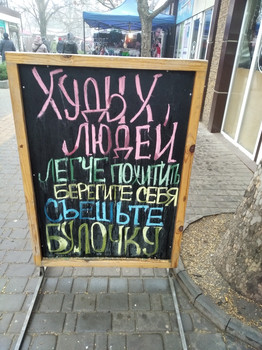 ХУДЫХ
ЛЮДЕЙ
ЛЕГЧЕ ПОХИТИТЬ
БЕРЕГИТЕ СЕБЯ
СЪЕШЬТЕ
БУЛОЧКУ